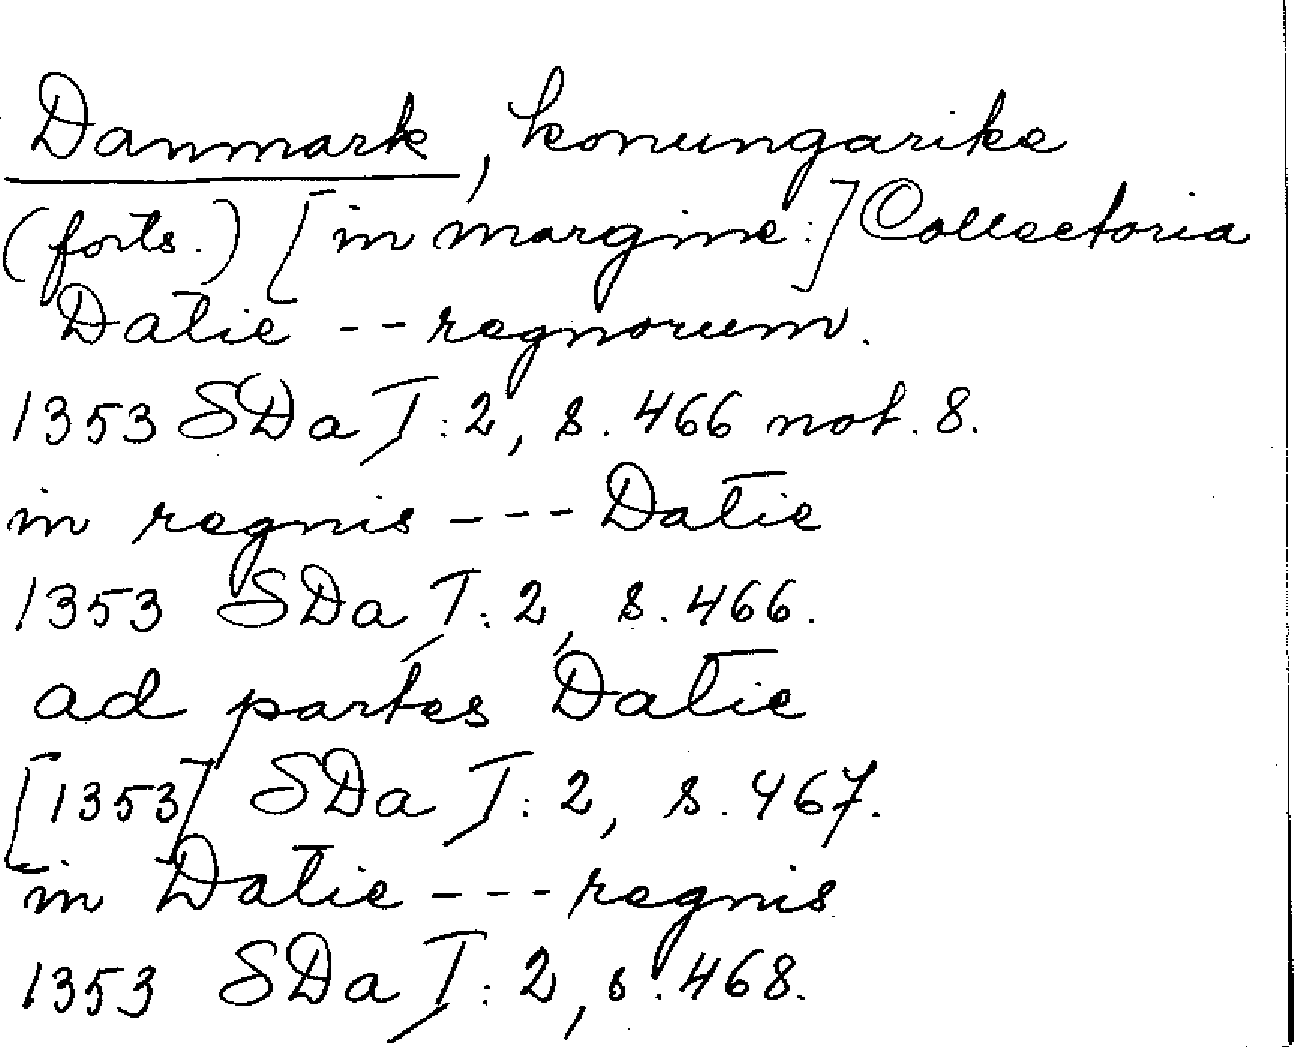 Danmark, konungarike
(forts.) [in margine:] Collectoria
Datie -- regnorum.
1353 SDa I:2, s. 466 not. 8.
in regnis --- Datie
1353 SDa I:2, s. 466.
ad partes Datie
[1353] SDa I:2, s. 467.
in Datie --- regnis
1353 SDa I:2, s. 468.